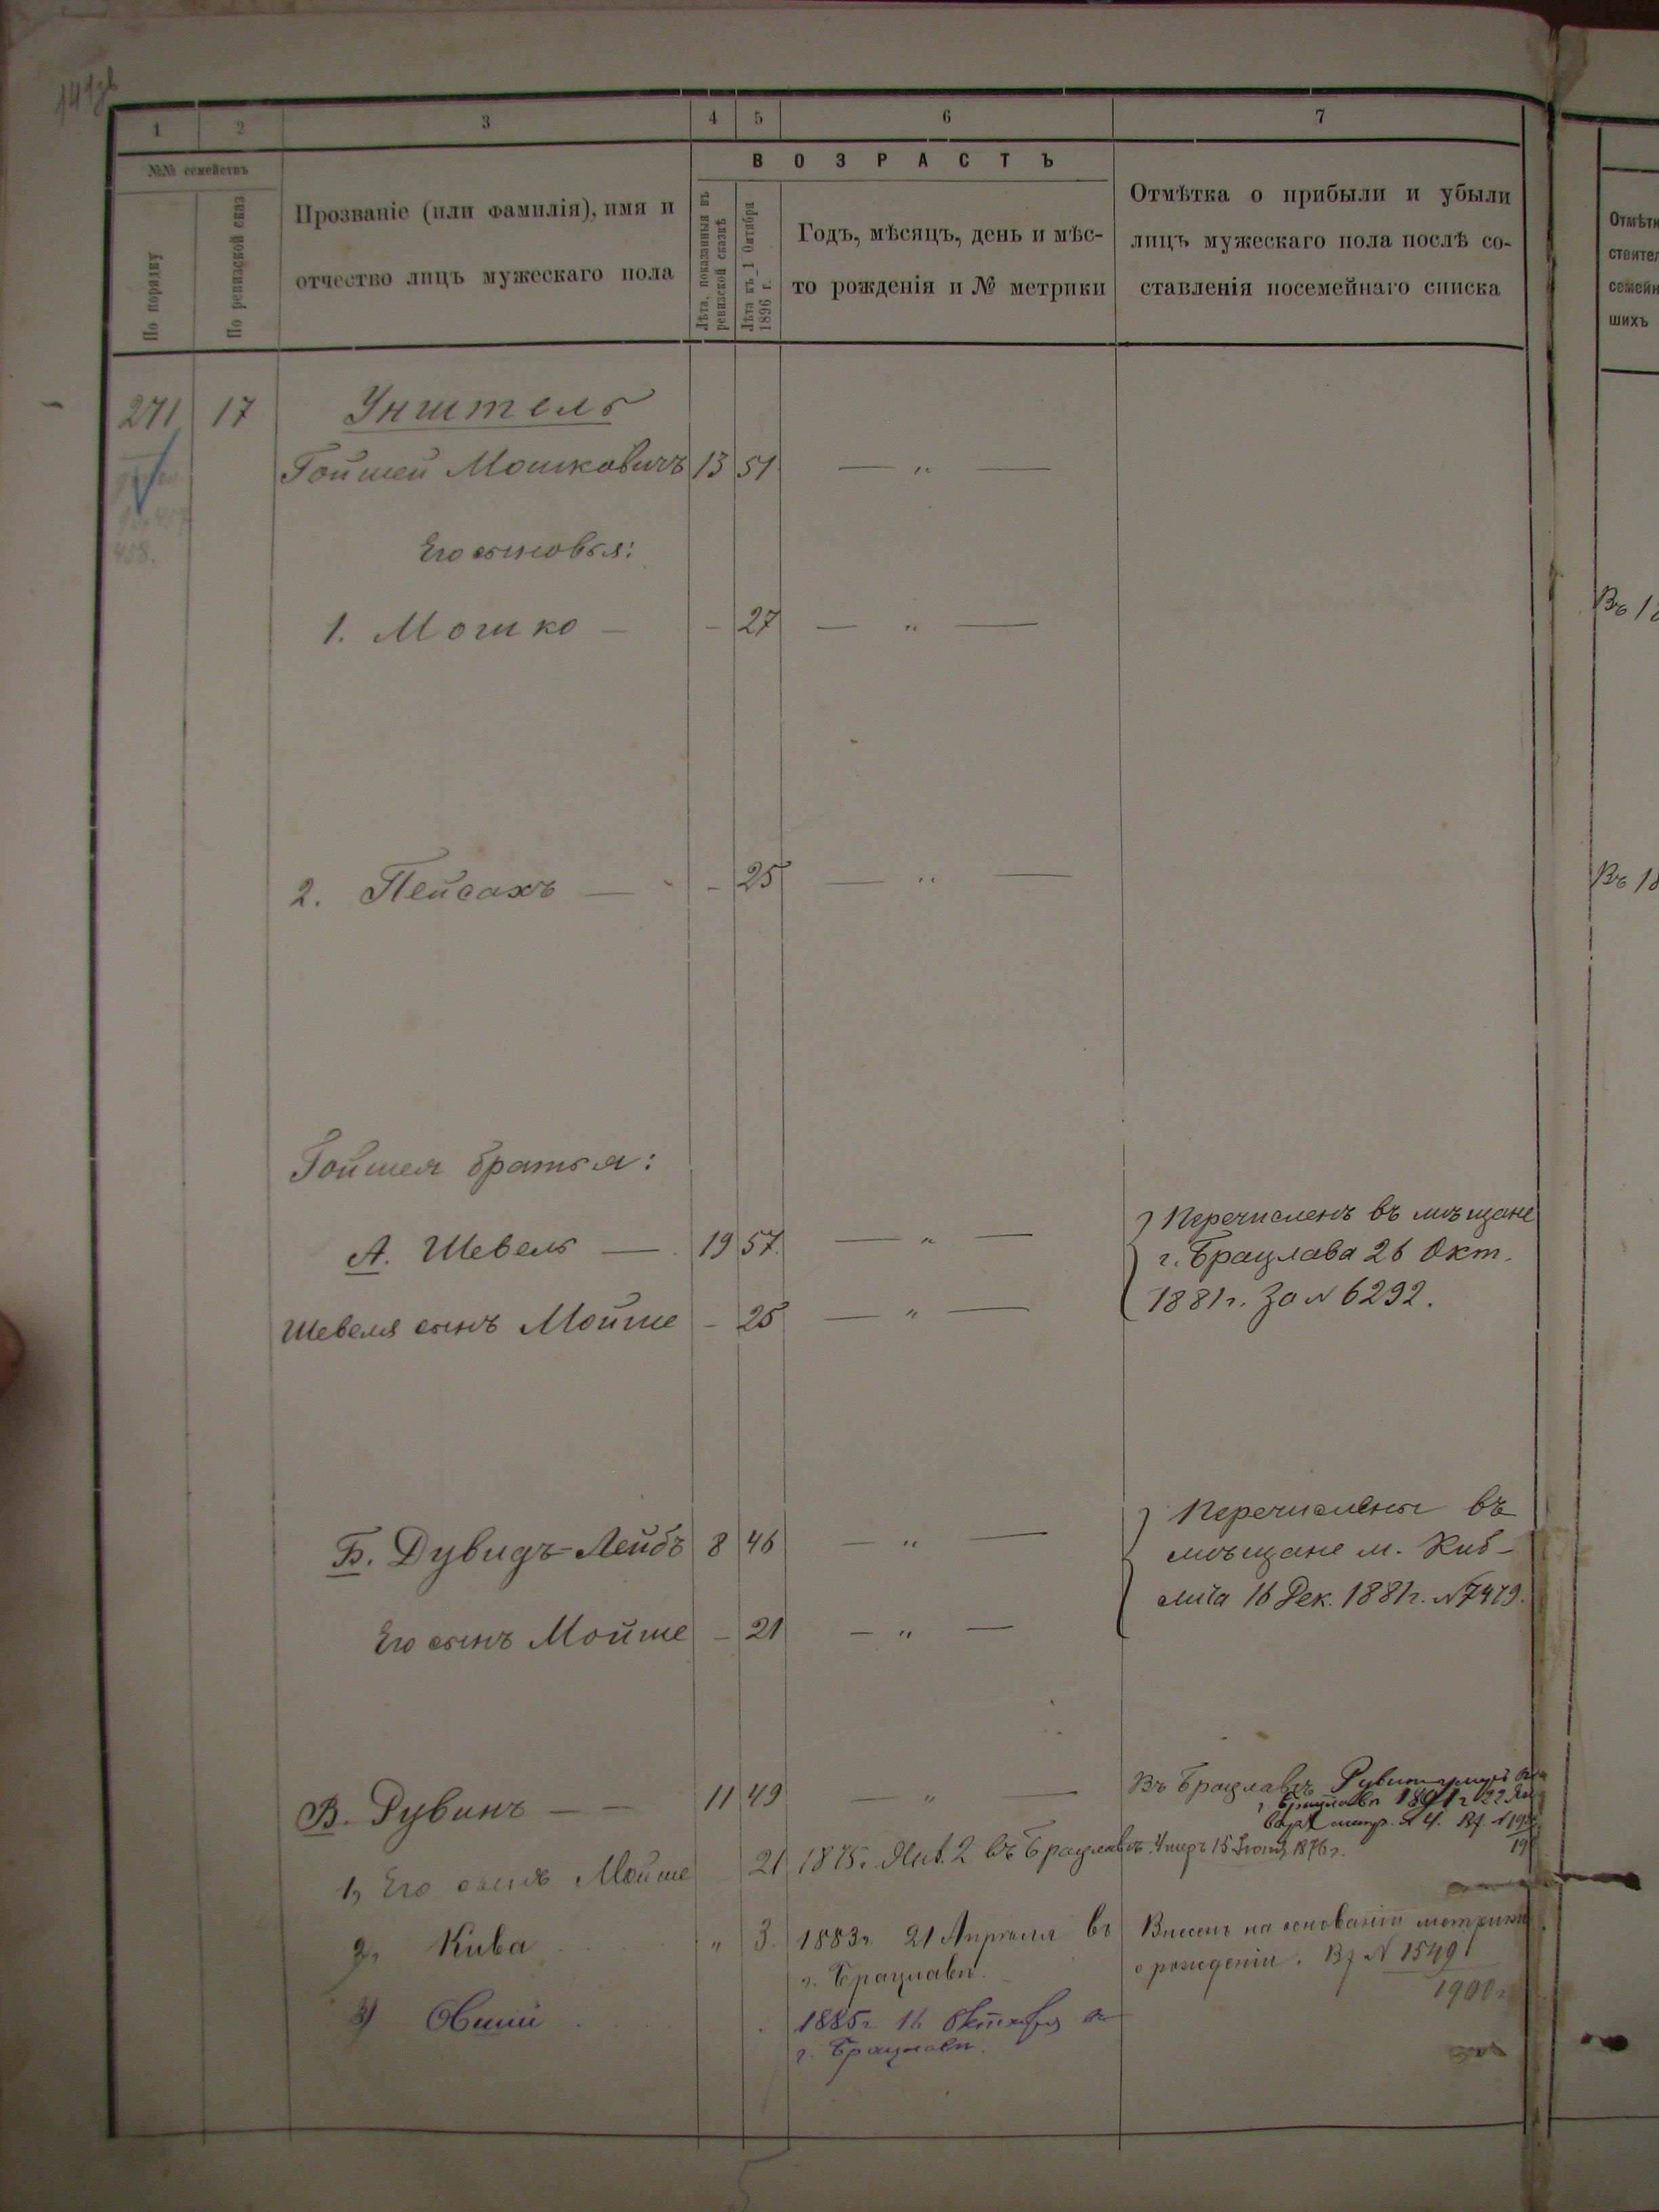 1 2 3 4 5 6 7
№№ семействъ
По порядку
По ревизской сказ
Прозваніе (или фамилія), имя и
отчество лицъ мужескаго пола
ВОЗРАСТЪ
Лѣта, показанныя въ
ревизской сказкѣ
Лѣта къ 1 Октября
1896 г.
Годъ, мѣсяцъ, день и мѣс-
то рожденія и № метрики
Отмѣтка о прибыли и убыли
лицъ мужескаго пола послѣ со-
ставленія посемейнаго списка
271 17 Унштель
Гойшей Мошковичъ 13 51 — „ —
458.
Его сыновья:
1. Мошко — - 27 — „ —
2. Пейсахъ — - 25 — „ —
Гойшея братья:
А. Шевель — 19 57. — „ —
Перечисленъ въ мѣщане
г. Брацлава 26 Окт.
1881 г. За № 6292.
Шевеля сынъ Мойше - 25 — „ —
Б. Дувидъ-Лейбъ 8 46 — „ —
Перечислены въ
мѣщане м. Киб-
лича 16 Дек. 1881 г. № 7479.
Его сынъ Мойше - 21 — „ —
В. Рувинъ — — 11 49 — „ —
Въ Брацлавѣ
1, Его сынъ Мойше 21 1875 г. Янв. 2 въ Брацлавѣ. Умеръ 15 Іюня 1876 г.
2, Кива „ 3. 1883 г. 21 Апрѣля въ
г. Брацлавѣ.
Внесенъ на основаніи метрики
о рожденіи. Вх № 1549
1900 г
3) Овший 1885 г 16 Октября въ
г. Брацлавѣ.
Отмѣтк
ствител
семейн
шихъ
Въ 18
Въ 18